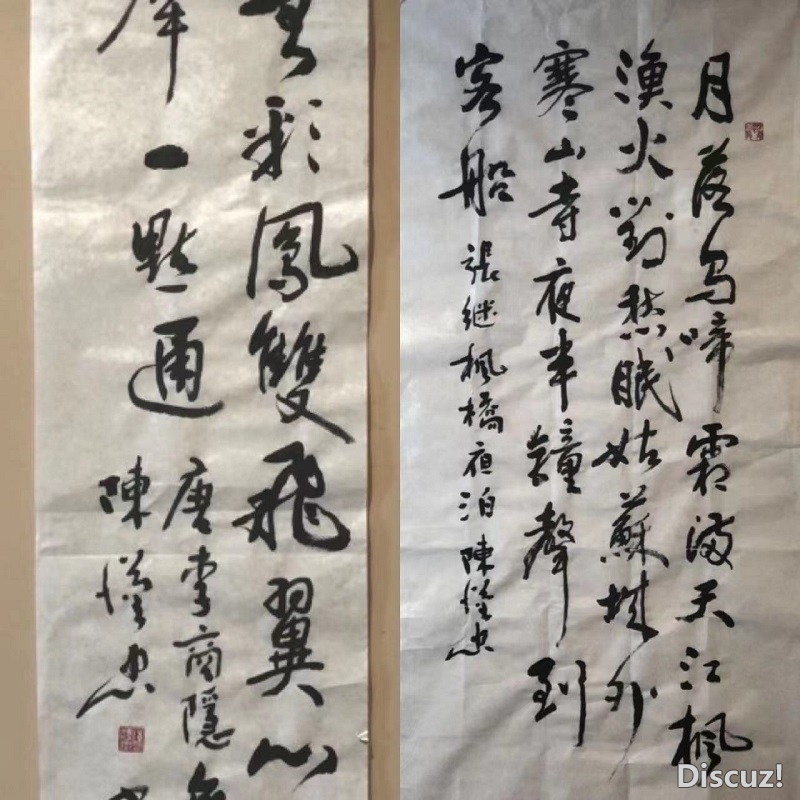 彩鳳雙飛翼心
犀一點通
唐李商隱
陳
月落烏啼霜滿天江楓
漁火對愁眠姑蘇城外
寒山寺夜半鐘聲到
客船 張继楓橋夜泊 陳
Discuz!